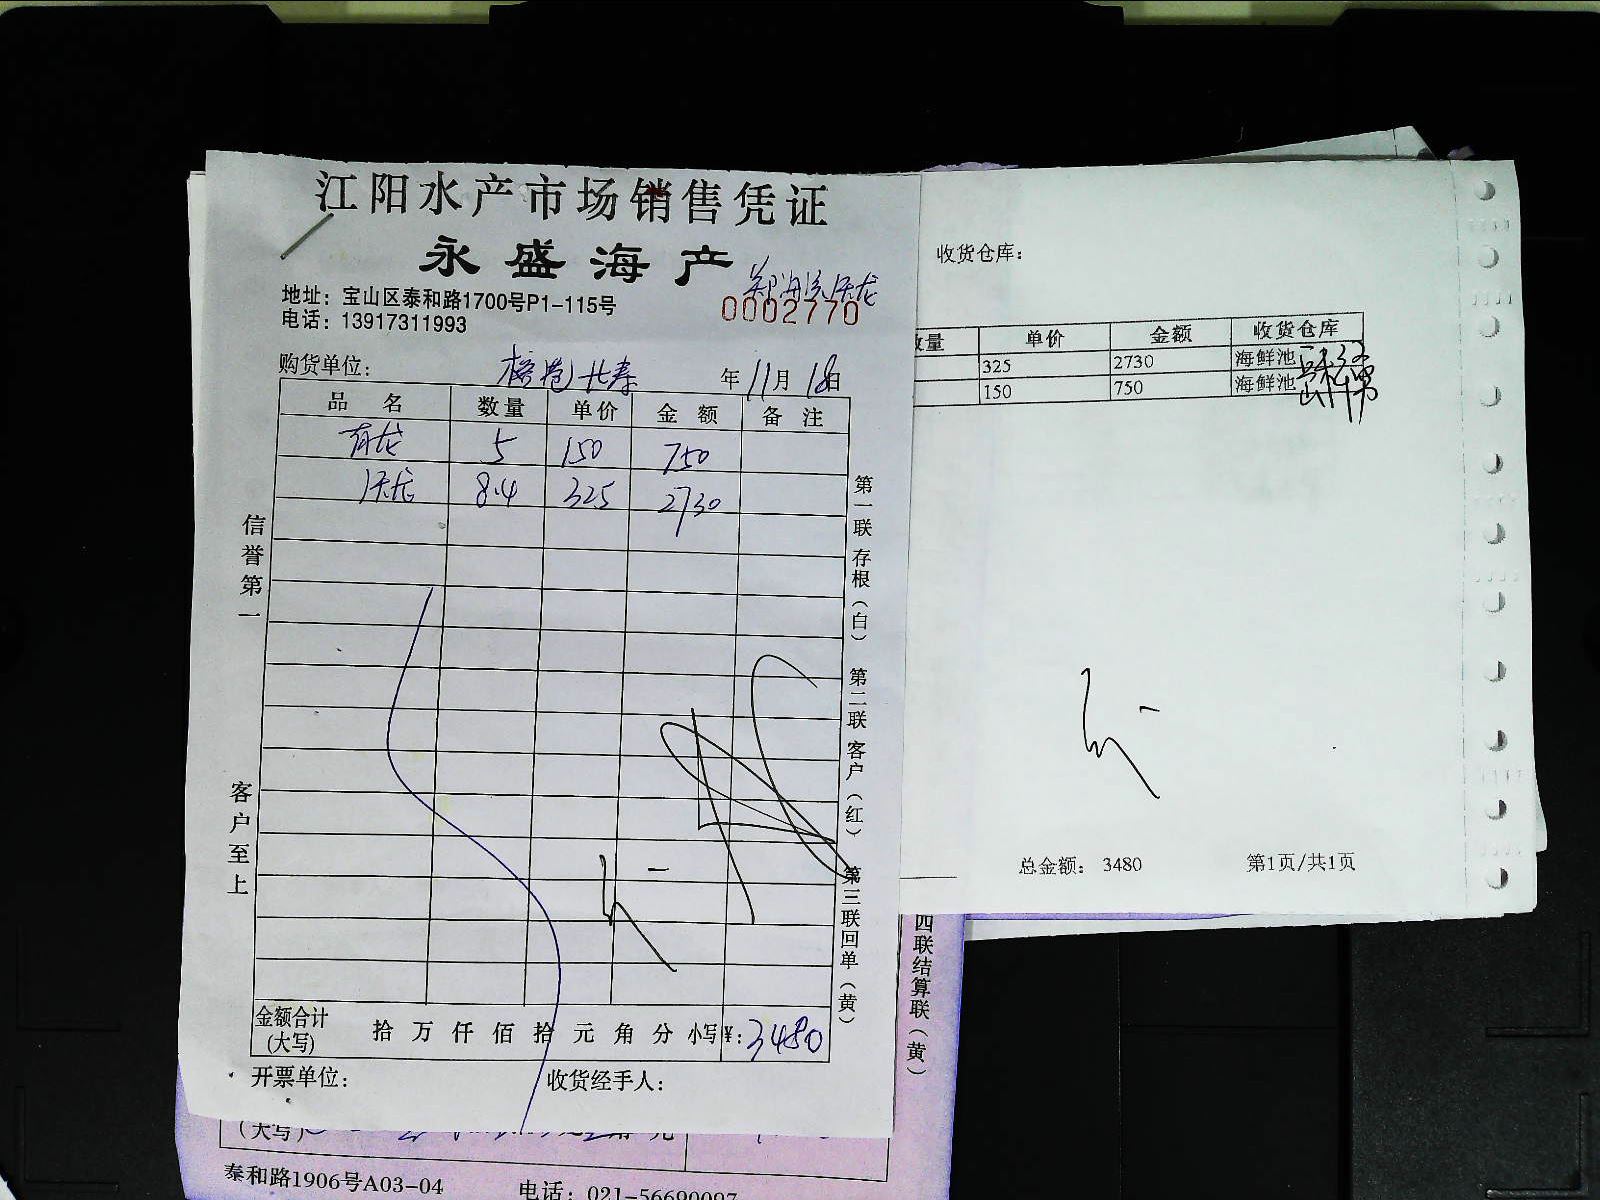 江阳水产市场销售凭证
永盛海产
地址：宝山区泰和路1700号P1-115号
电话：13917311993
0002770
购货单位： 年 11月 18日
品名 数量 单价 金额 备注
青龙 5 150 750
沃龙 8.4 325 2730
信誉第一
客户至上
第一联存根（白）
第二联客户（红）
第三联回单（黄）
金额合计
(大写)
拾 万 仟 佰 拾 元 角 分 小写¥：3480
开票单位： 收货经手人：
收货仓库：
数量 单价 金额 收货仓库
325 2730 海鲜池
150 750 海鲜池
总金额： 3480 第1页/共1页
四联结算联（黄）
（大写）
泰和路1906号A03-04 电话：021-56690097